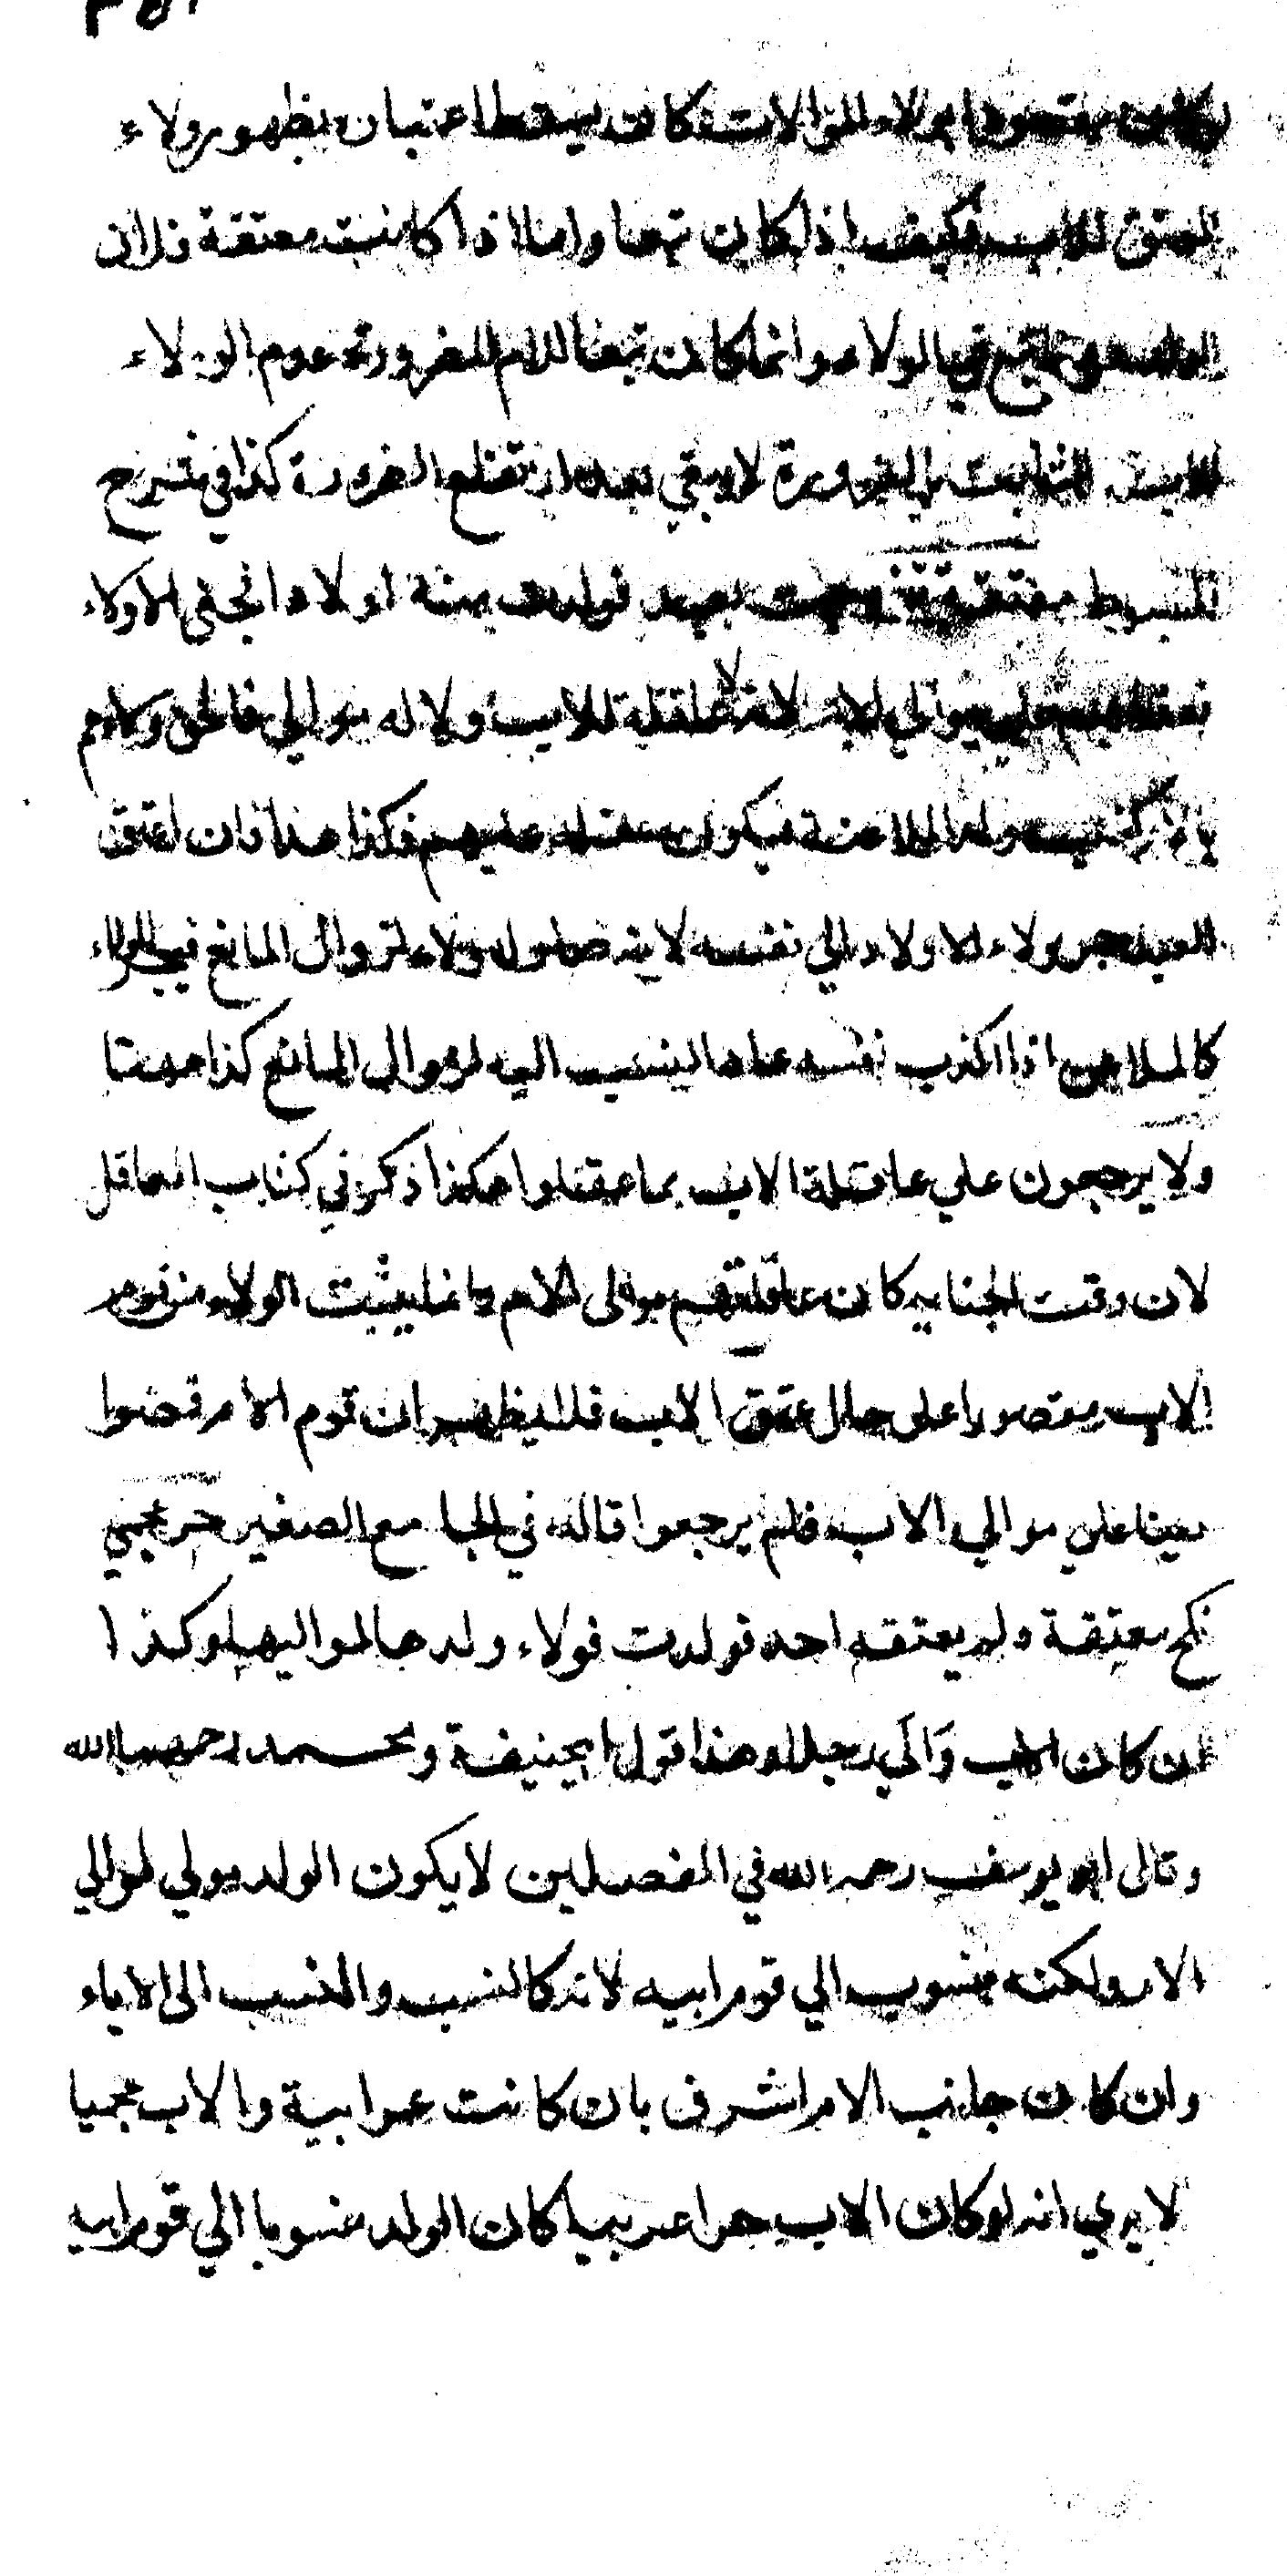 يكون مقصودا بولاء الموالات فكان يسقط اعتباره بظهور ولاء
العتق للاب فكيف اذا كان تبعا واما اذا كانت معتقة فلان
الولد تبع في الولاء وانما كان تبعا للام للضرورة عدم الولاء
للاب الثابت بالضرورة لا يبقي بعد ارتفاع الضرورة كذا في شرح
المبسوط معتقة تزوجت بعبد فولدت منه اولادا فجني الاولاد
فعقلهم علي موالي الام لانه لا عاقلة للاب ولا له موالي فالحقوا بالام
العبد جر ولاء الاولاد الي نفسه لانه ولاء لزوال المانع فيجر الولاء
كالملاعن اذا اكذب نفسه عاد النسب اليه لزوال المانع كذا ههنا
ولا يرجعون علي عاقلة الاب بما عقلوا هكذا ذكر في كتاب المعاقل
لان وقت الجنايه كان عاقلتهم موالى الام وانما يثبت الولاء من قوم
الاب مقصورا على حال عتق الاب فلا يظهر ان قوم الام قضوا
دينا علي موالي الاب فلم يرجعوا قاله في الجامع الصغير حر عجمي
نكح معتقة ولم يعتقه احد فولدت فولاء ولدها لمواليها وكذا
ان كان الاب وَالَي رجلا وهذا قول ابيحنيفة ومحمد رحمهما الله
وقال ابو يوسف رحمه الله في الفصلين لا يكون الولد مولي لموالي
الام ولكنه منسوب الي قوم ابيه لانه كالنسب والنسب الى الاباء
وان كان جانب الام اشرف بان كانت عرابية والاب عجميا
لا يري انه لو كان الاب حرا عربيا كان الولد منسوبا الي قوم ابيه